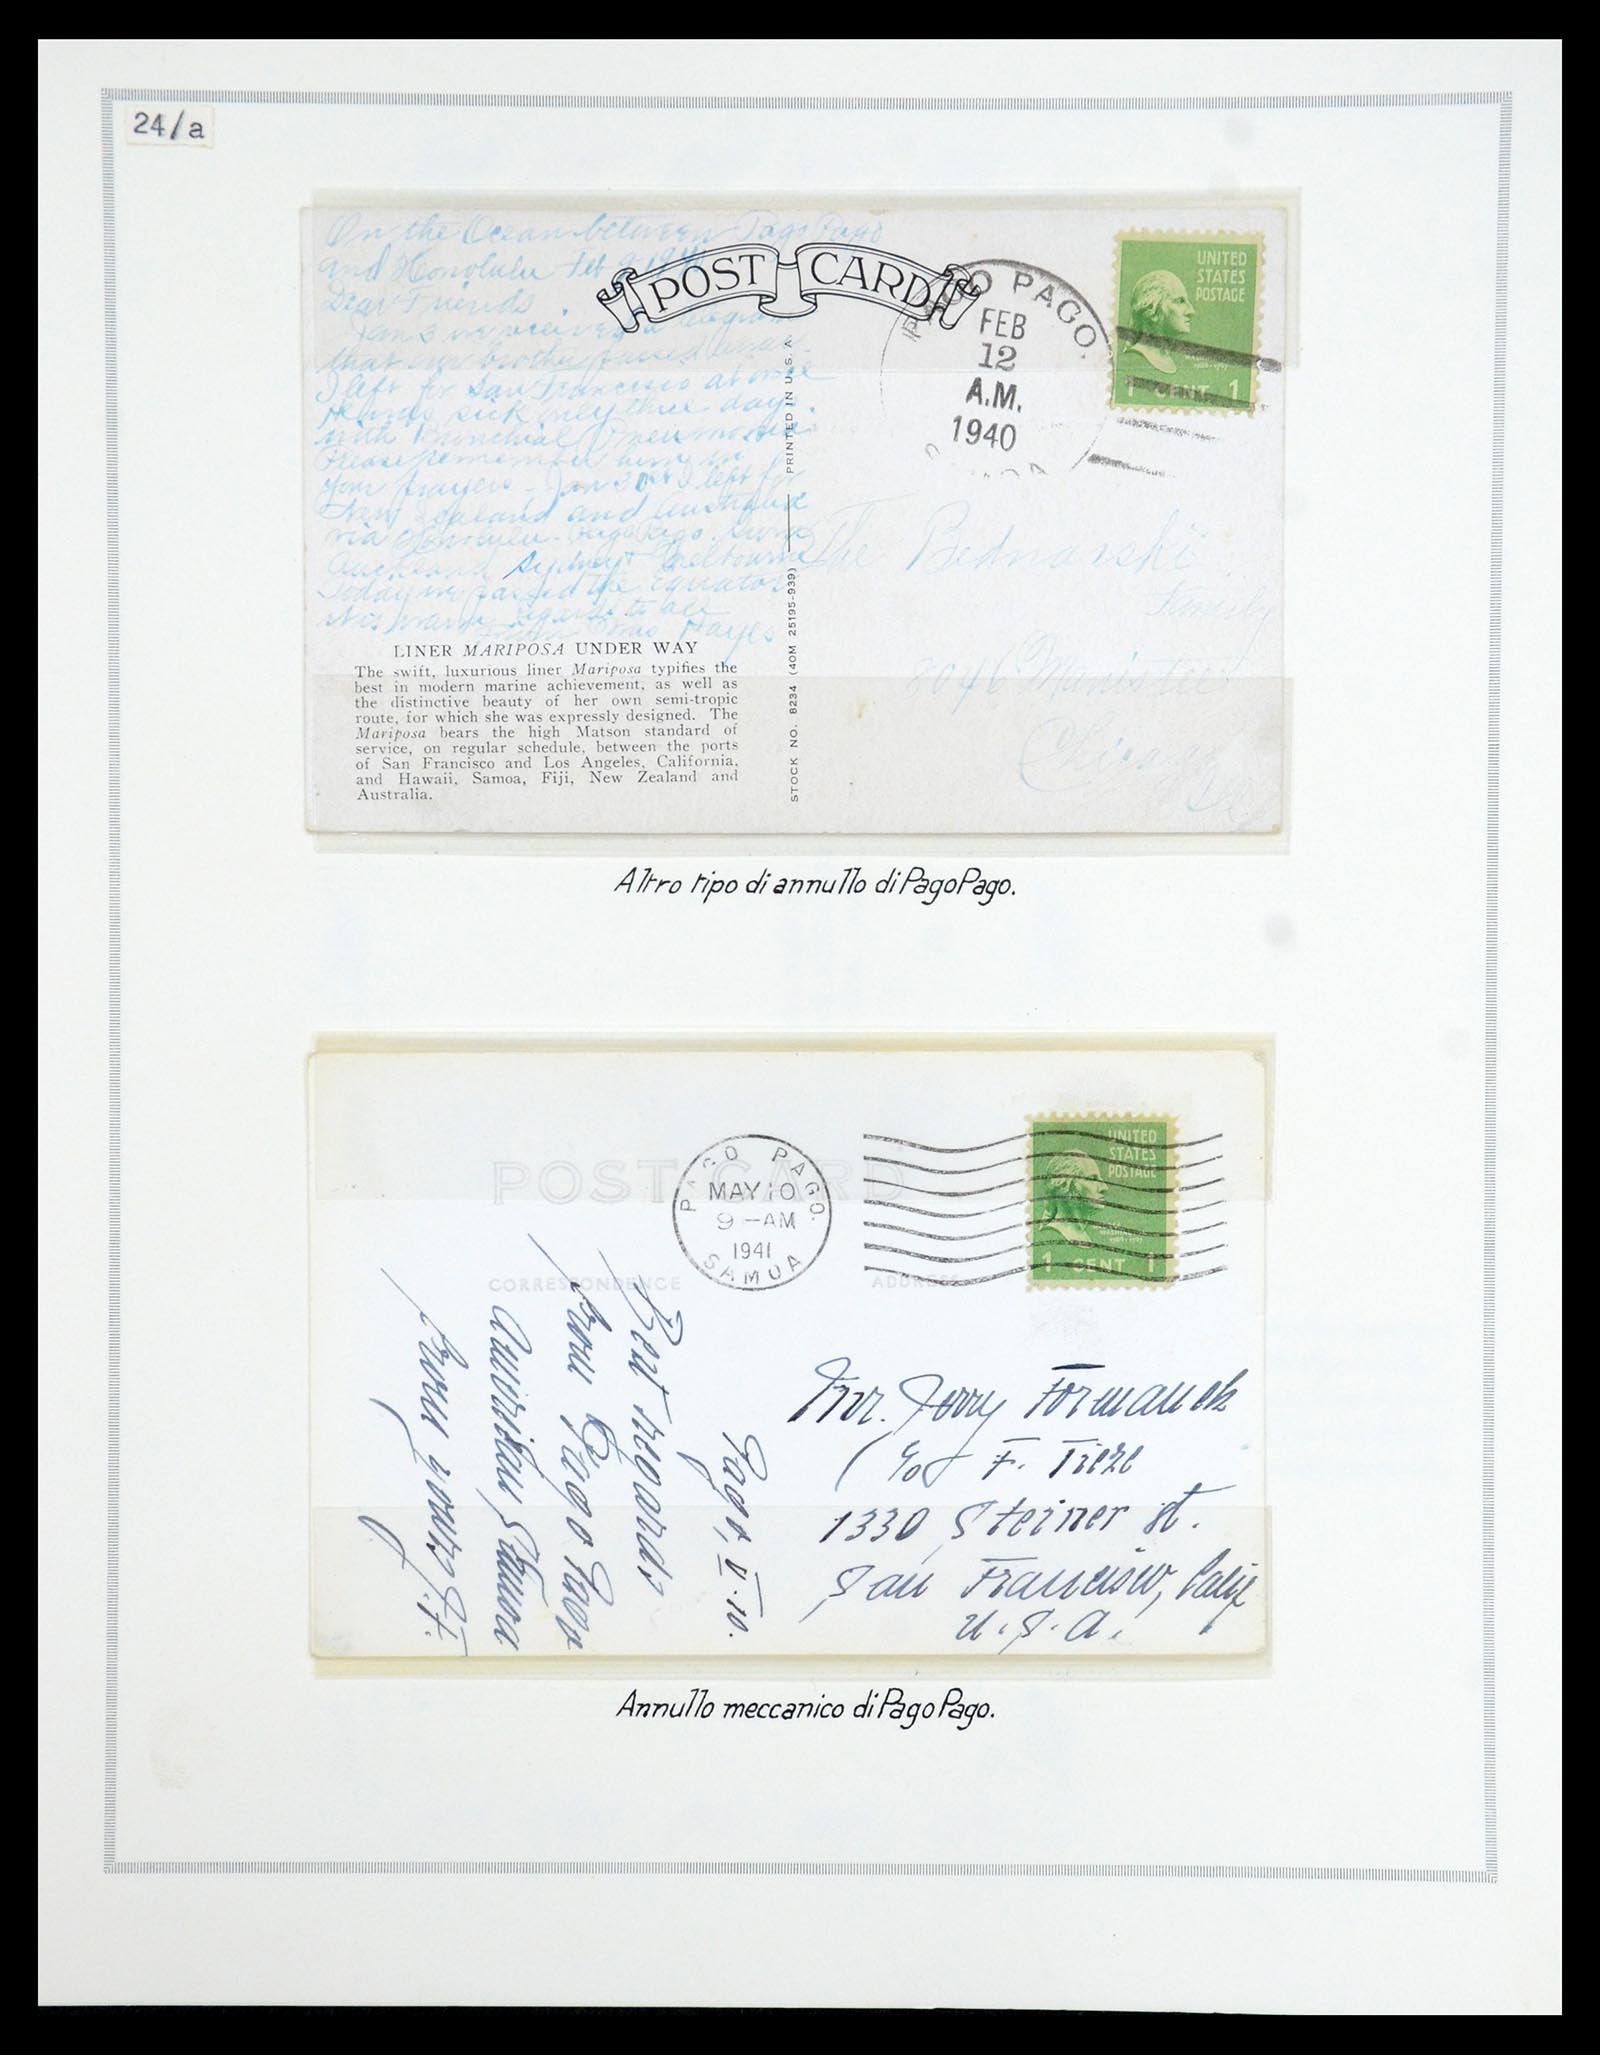 24/a
On the Ocean between Pago Pago
and Honolulu Feb 9 1940
Dear Friends
Jan 3 we received a telegram
that our brother passed away.
I left for San Francisco at once
He was sick only three days.
with Bronchial Pneumonia
Please remember him in
your prayers - Jan 30th I left for
New Zealand and Australia
via Honolulu. Pago Pago.
Auckland Sydney + Melbourne
Today we passed the equator
it is warm regards to all
Hayes
POST CARD
PAGO PAGO.
FEB
12
A.M.
1940
UNITED
STATES
POSTAGE
1 CENT 1
The Bednarski
Family
8046 Manistee
Chicago
Ill
PRINTED IN U. S. A.
STOCK NO. 8234 (40M 25195-939)
LINER MARIPOSA UNDER WAY
The swift, luxurious liner Mariposa typifies the
best in modern marine achievement, as well as
the distinctive beauty of her own semi-tropic
route, for which she was expressly designed. The
Mariposa bears the high Matson standard of
service, on regular schedule, between the ports
of San Francisco and Los Angeles, California,
and Hawaii, Samoa, Fiji, New Zealand and
Australia.
Altro tipo di annullo di Pago Pago.
POST CARD
PAGO PAGO.
MAY 10
9 - AM
1941
SAMOA
UNITED
STATES
POSTAGE
1 CENT 1
CORRESPONDENCE
ADDRESS
Pago, V. 10.
Best regards
from Pago Pago
American Samoa
from yours
J. F.
Mr. Jerry Formanek
c/o F. Tieze
1330 Steiner st.
San Francisco, Calif
U. S. A.
Annullo meccanico di Pago Pago.